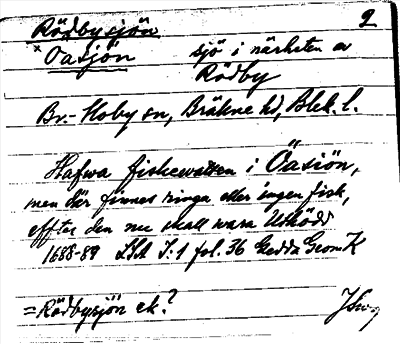 Rödbysjön 2
× Öasjön sjö i närheten av
Rödby
Br.-Hoby sn, Bräkne hd, Blek. l.
Hafwa fiskewatten i Öasiön,
men där finnes ringa eller ingen fisk,
effter den nu skall wara Utködd
1688-89 LSA I:1 fol. 36 Gedda Geom. K
= Rödbysjön ek.?